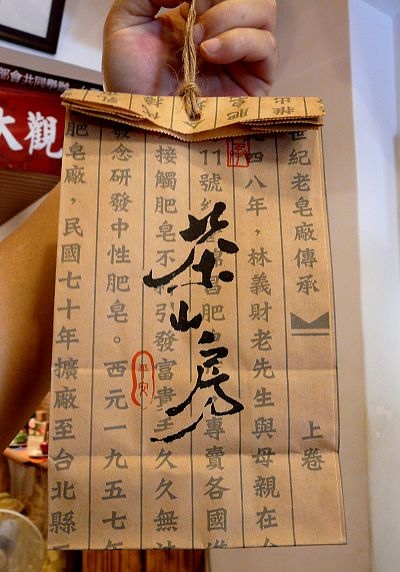 部會共同舉辦
大觀
世紀老皂廠傳承
上卷
四八年，林義財老先生與母親在
11號
習肥
專賣各國
接觸肥皂不
引發富貴手久久無
發念研發中性肥皂。西元一九五七年
肥皂廠，民國七十年擴廠至台北縣
茶山房
平安